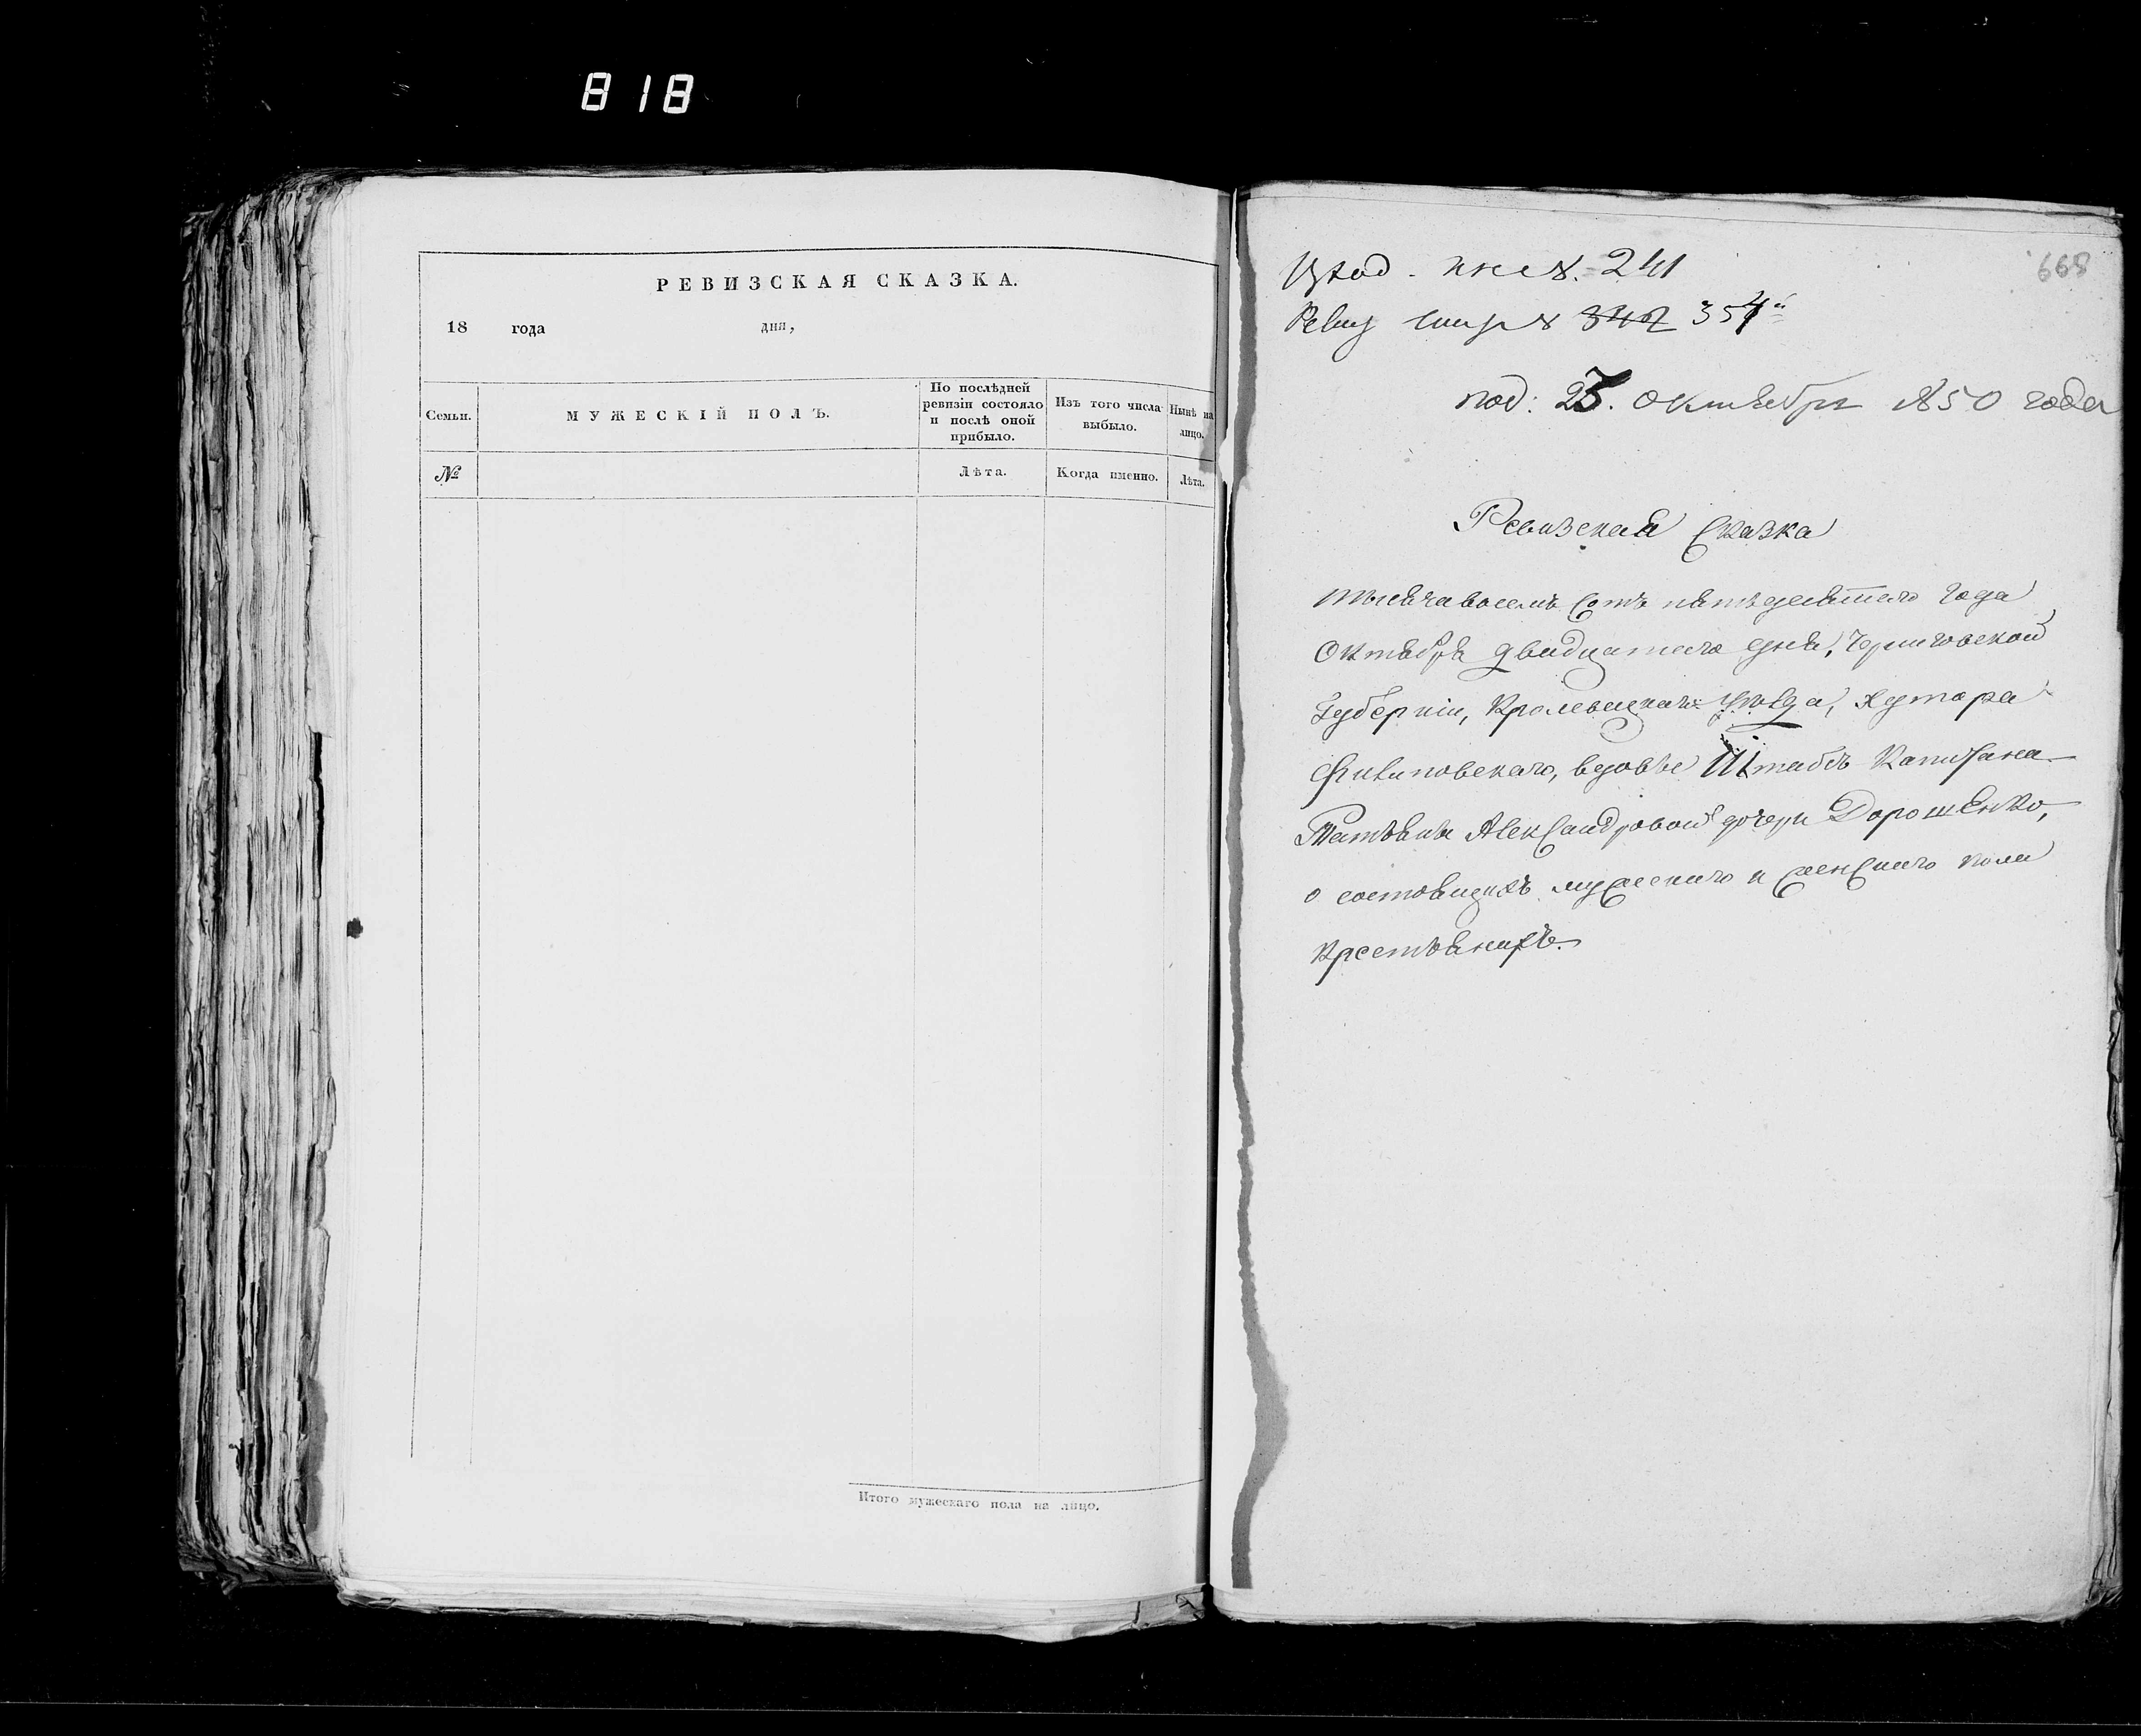 818
РЕВИЗСКАЯ СКАЗКА.
18 года дня,
Семьи.
МУЖЕСКІЙ ПОЛЪ.
По послѣдней
ревизіи состояло
и послѣ оной
прибыло.
Изъ того числа
выбыло.
Нынѣ на
лицо.
№
Лѣта.
Когда именно.
Лѣта.
Итого мужескаго пола на лицо.
668
Вход. 241
Ревиз 342 354й
под: 25. октября 1850 года
Ревизская Сказка
тысяча восемь сотъ пятьдесятого года
Октября двадцатого дня, Черниговской
Губерніи, Кролевецкаго уѣзда, Хутора
Филиповскаго, вдовы Штабсъ Капитана
Татьяны Александровой дочери Дорошенко,
о состоящихъ мужескаго и женскаго пола
крестьянахъ.